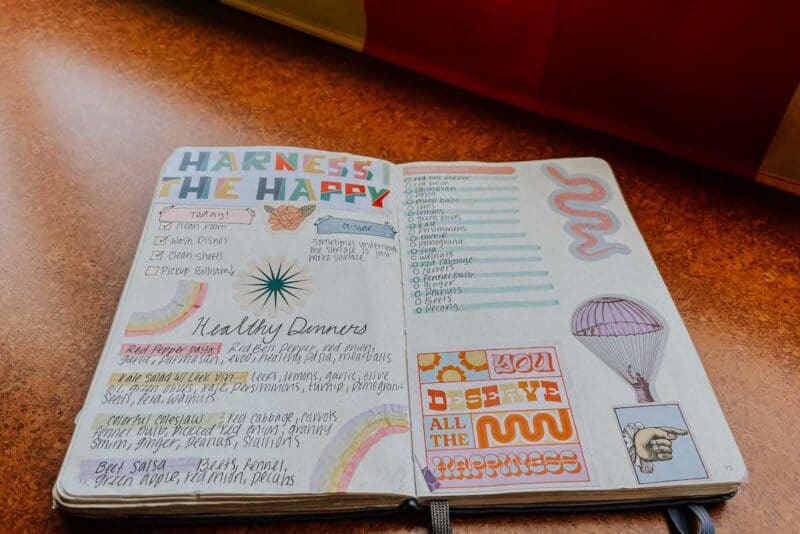 HARNESS
THE HAPPY
Today!
Clean room
Wash Dishes
Clean sheets
Pickup
Sometimes underneath
the surface is just
more surface.
Healthy Dinners
Red Pepper pasta Red Bell Pepper, red onion,
garlic, Parmasan, evoo, healthy pasta, meatballs
Kale Salad w/ Leek Vin leeks, lemons, garlic, olive
oil, green olives, kale, Persimmons, turnip, pomogranit
seeds, feta, walnuts
Colorful Coleslaw red cabbage, carrots
Fennel bulb, pickled red onion, granny
smith, ginger, peanuts, scallions
Beet Salsa Beets, Fennel,
green apple, red onion, pecans
red bell pepper
red onion
parmasan
pasta
meat balls
leeks
lemons
green olives
kale
persimmons
turnip
pomogranit
feta
walnuts
red cabbage
carrots
fennel bulb
ginger
Peanuts
Beets
YOU
DESERVE
ALL
THE
HAPPINESS